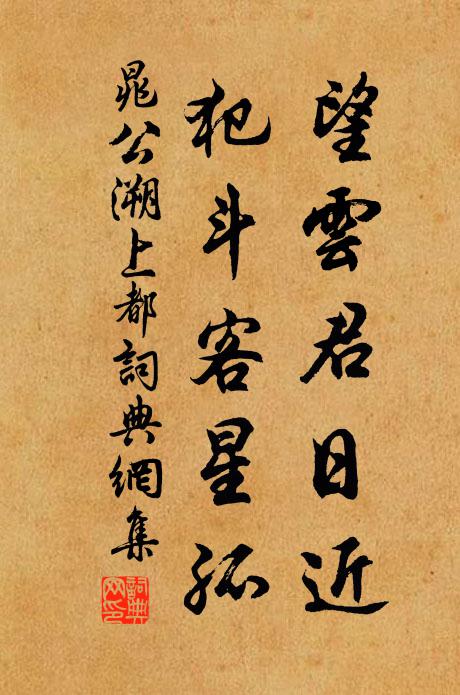 望雲君日近
犯斗客星孤
晁公溯上都詞典網集
詞典网印